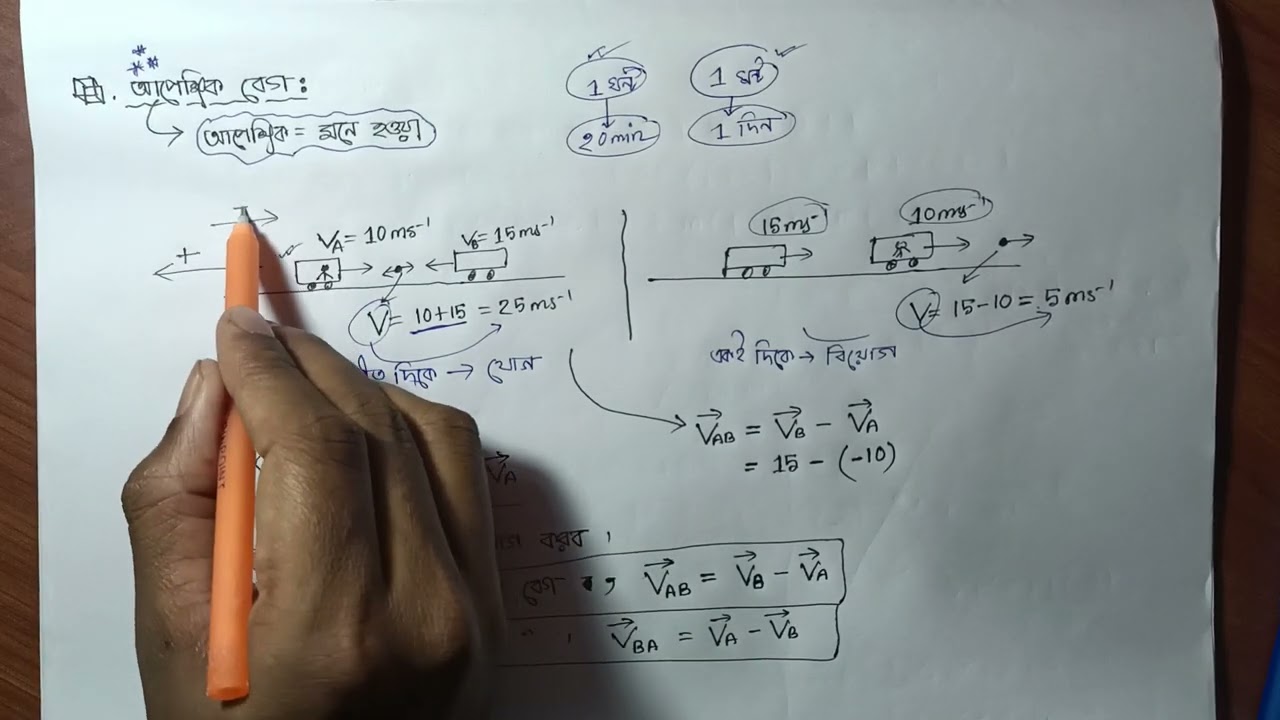 আপেক্ষিক বেগ:
আপেক্ষিক = মনে হওয়া
1 ঘন্টা
20 min
1 ঘন্টা
1 দিন
+
V_A = 10 ms⁻¹
V_B = 15 ms⁻¹
V = 10+15 = 25 ms⁻¹
দিকে → যোগ
15 ms⁻¹
10 ms⁻¹
V = 15-10 = 5 ms⁻¹
একই দিকে → বিয়োগ
V⃗_AB = V⃗_B - V⃗_A
= 15 - (-10)
V⃗_A
করব।
বেগ , V⃗_AB = V⃗_B - V⃗_A
" , V⃗_BA = V⃗_A - V⃗_B